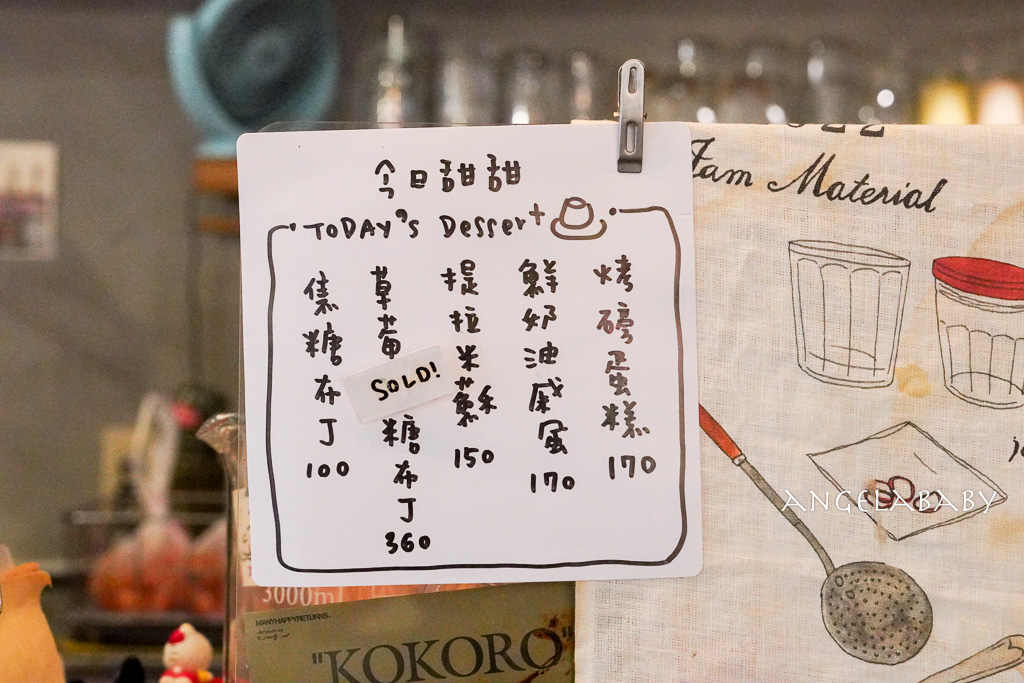 今日甜甜
TODAY's Dessert
烤磅蛋糕
170
鮮奶油戚風
170
提拉米蘇
150
草莓
SOLD!
糖布丁
360
焦糖布丁
100
Jam Material
ANGELABABY
3000ml
MANYHAPPYRETURNS
"KOKORO"